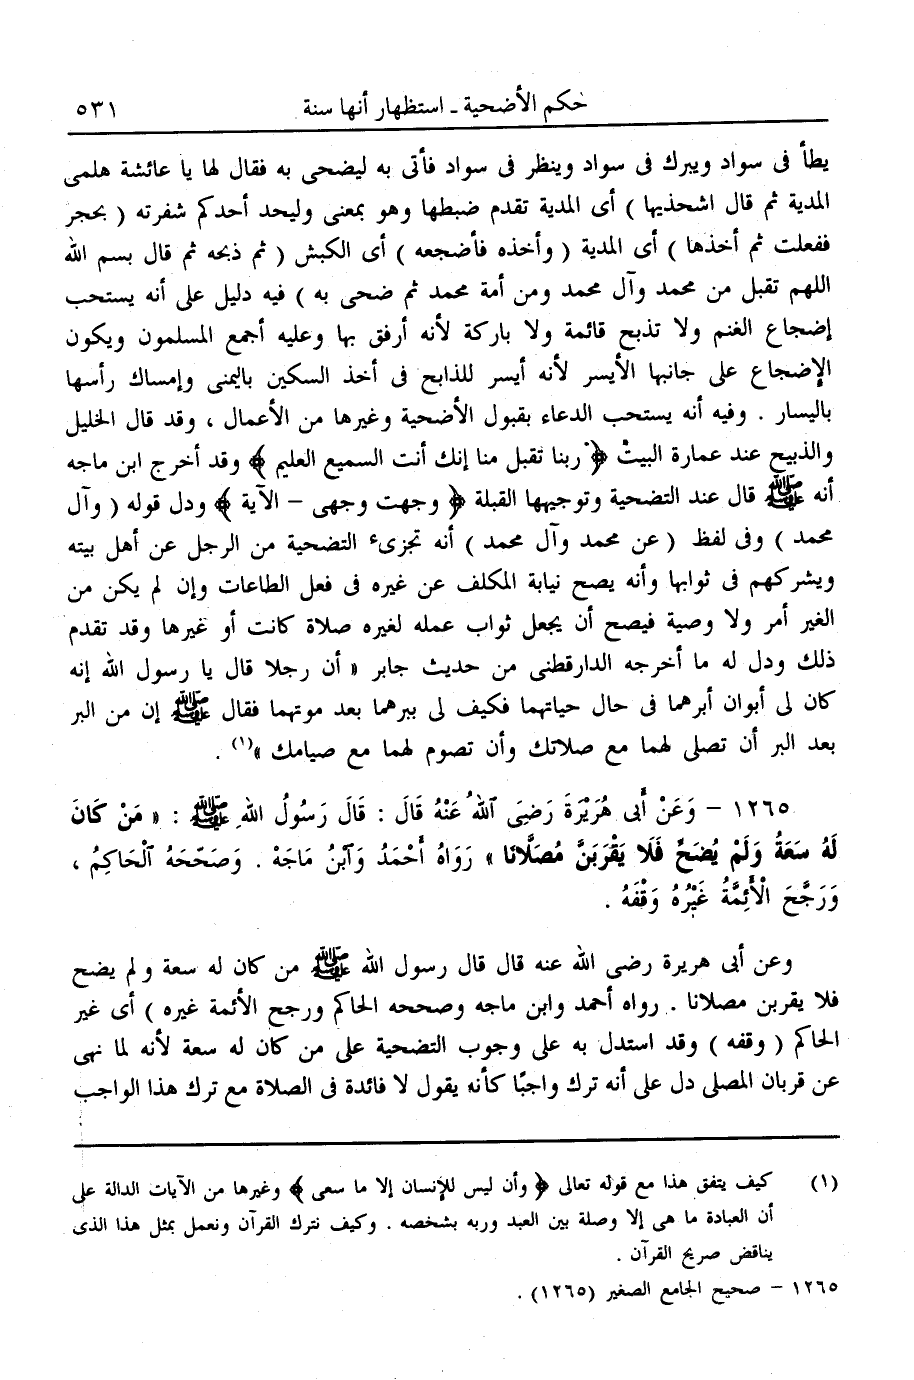 حكم الأضحية ـ استظهار أنها سنة ٥٣١
يطأ فى سواد ويبرك فى سواد وينظر فى سواد فأتى به ليضحى به فقال لها يا عائشة هلمى
المدية ثم قال اشحذيها ) أى المدية تقدم ضبطها وهو بمعنى وليحد أحدكم شفرته ( بحجر
ففعلت ثم أخذها ) أى المدية ( وأخذه فأضجعه ) أى الكبش ( ثم ذبحه ثم قال بسم الله
اللهم تقبل من محمد وآل محمد ومن أمة محمد ثم ضحى به ) فيه دليل على أنه يستحب
إضجاع الغنم ولا تذبح قائمة ولا باركة لأنه أرفق بها وعليه أجمع المسلمون ويكون
الإضجاع على جانبها الأيسر لأنه أيسر للذابح فى أخذ السكين باليمنى وإمساك رأسها
باليسار . وفيه أنه يستحب الدعاء بقبول الأضحية وغيرها من الأعمال ، وقد قال الخليل
والذبيح عند عمارة البيت ﴿ ربنا تقبل منا إنك أنت السميع العليم ﴾ وقد أخرج ابن ماجه
أنه ﷺ قال عند التضحية وتوجيهها القبلة ﴿ وجهت وجهى – الآية ﴾ ودل قوله ( وآل
محمد ) وفى لفظ ( عن محمد وآل محمد ) أنه تجزىء التضحية من الرجل عن أهل بيته
ويشركهم فى ثوابها وأنه يصح نيابة المكلف عن غيره فى فعل الطاعات وإن لم يكن من
الغير أمر ولا وصية فيصح أن يجعل ثواب عمله لغيره صلاة كانت أو غيرها وقد تقدم
ذلك ودل له ما أخرجه الدارقطنى من حديث جابر « أن رجلا قال يا رسول الله إنه
كان لى أبوان أبرهما فى حال حياتهما فكيف لى ببرهما بعد موتهما فقال ﷺ إن من البر
بعد البر أن تصلى لهما مع صلاتك وأن تصوم لهما مع صيامك »(١) .
١٢٦٥ – وَعَنْ أَبى هُرَيْرَةَ رَضِىَ ٱللهُ عَنْهُ قَالَ : قَالَ رَسُولُ اللهِ ﷺ : « مَنْ كَانَ
لَهُ سَعَةُ وَلَمْ يُضَحِّ فَلَا يَقْرَبَنَّ مُصَلَّانَا » رَوَاهُ أَحْمَدُ وَٱبْنُ مَاجَهْ . وَصَحَّحَهُ ٱلْحَاكِمُ ،
وَرَجَّحَ الْأَئِمَّةُ غَيْرُهُ وَقْفَهُ .
وعن أبى هريرة رضى الله عنه قال قال رسول الله ﷺ من كان له سعة ولم يضح
فلا يقربن مصلانا . رواه أحمد وابن ماجه وصححه الحاكم ورجح الأئمة غيره ) أى غير
الحاكم ( وقفه ) وقد استدل به على وجوب التضحية على من كان له سعة لأنه لما نهى
عن قربان المصلى دل على أنه ترك واجبًا كأنه يقول لا فائدة فى الصلاة مع ترك هذا الواجب
(١) كيف يتفق هذا مع قوله تعالى ﴿ وأن ليس للإنسان إلا ما سعى ﴾ وغيرها من الآيات الدالة على
أن العبادة ما هى إلا وصلة بين العبد وربه بشخصه . وكيف نترك القرآن ونعمل بمثل هذا الذى
يناقض صريح القرآن .
١٢٦٥ – صحيح الجامع الصغير (١٢٦٥) .